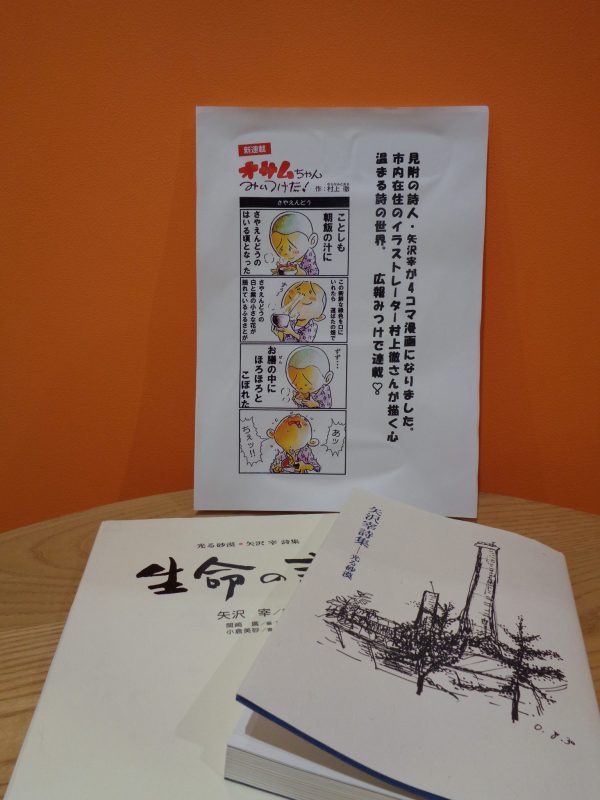 見附の詩人・矢沢宰が4コマ漫画になりました。
市内在住のイラストレーター村上徹さんが描く心
温まる詩の世界。 広報みつけで連載♡。
新連載
オサムちゃん
みつけだ!
作:村上 徹
さやえんどう
ことしも
朝飯の汁に
さやえんどうの
はいる頃となった
この新鮮な緑色を口に
いれたら 道ばたの畑で
さやえんどうの
白と紫の小さな花が
揺れているふるさとが
ずず…
お膳の中に
ほろほろと
こぼれた
あッ
ちぇッ!!
光る砂漠・矢沢 宰 詩集
生命の
矢沢 宰/
小倉美砂/
矢沢宰詩集—光る砂漠
0.8.30